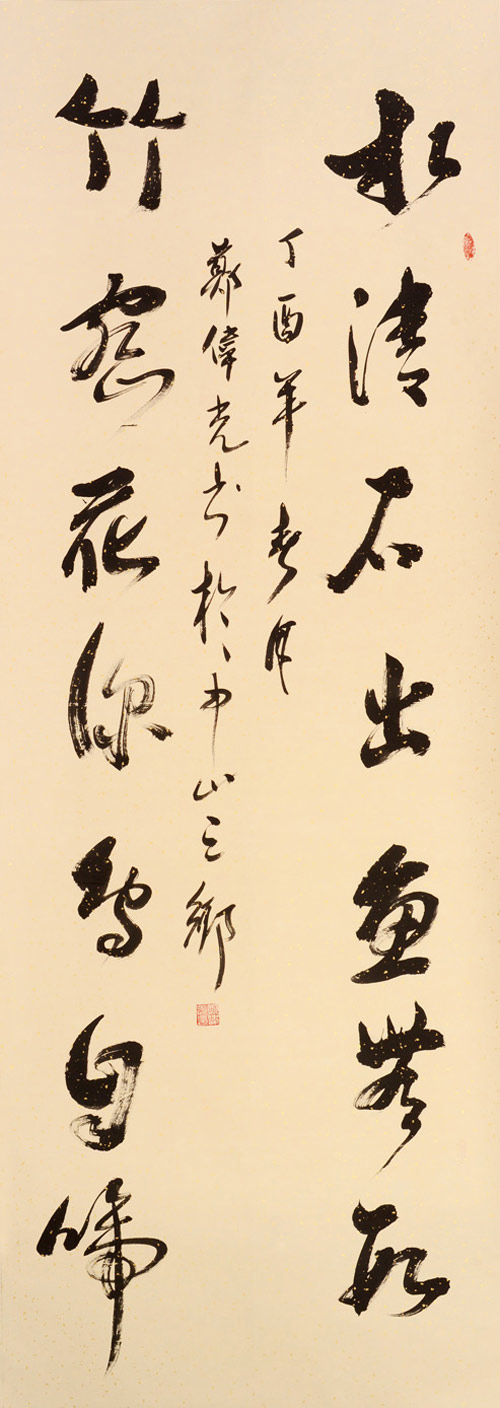 水清石出魚無
丁酉年春月
鄭偉光書於中山三鄉
竹密花深鳥自啼